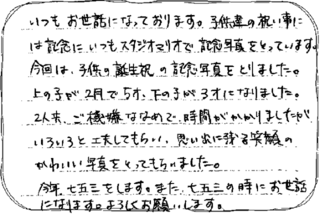 いつもお世話になっております。子供達の祝い事に
は記念にいつもスタジオマリオで記念写真をとっています。
今回は、子供の誕生祝の記念写真をとりました。
上の子が2月で5才、下の子が3才になりました。
2人共、ご機嫌ななめで、時間がかかりましたが
いろいろと工夫してもらい、思い出に残る笑顔の
かわいい写真をとってもらいました。
今年、七五三をします。また、七五三の時にお世話
になります。よろしくお願いします。